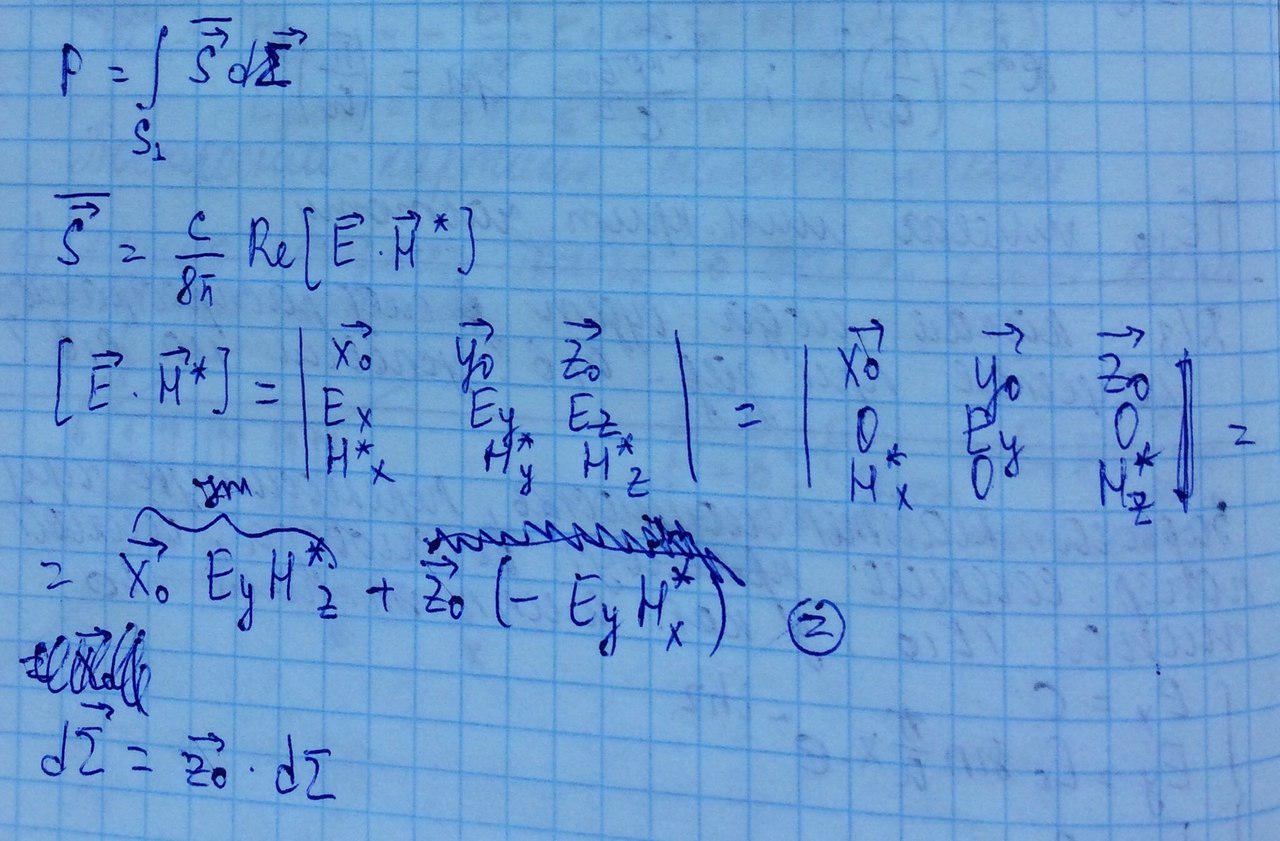 P = ∫_{S_1} \overline{\vec{S}} d\vec{Σ}
\overline{\vec{S}} = \frac{c}{8π} Re[\vec{E} · \vec{H}^*]
[\vec{E} · \vec{H}^*] = | \vec{x_0} \vec{y_0} \vec{z_0} ; E_x E_y E_z ; H^*_x H^*_y H^*_z | = | \vec{x_0} \vec{y_0} \vec{z_0} ; 0 E_y 0 ; H^*_x 0 H^*_z | =
Jm
= \vec{x_0} E_y H^*_z + \vec{z_0} (- E_y H^*_x) ⊜
d\vec{Σ} = \vec{z_0} · dΣ